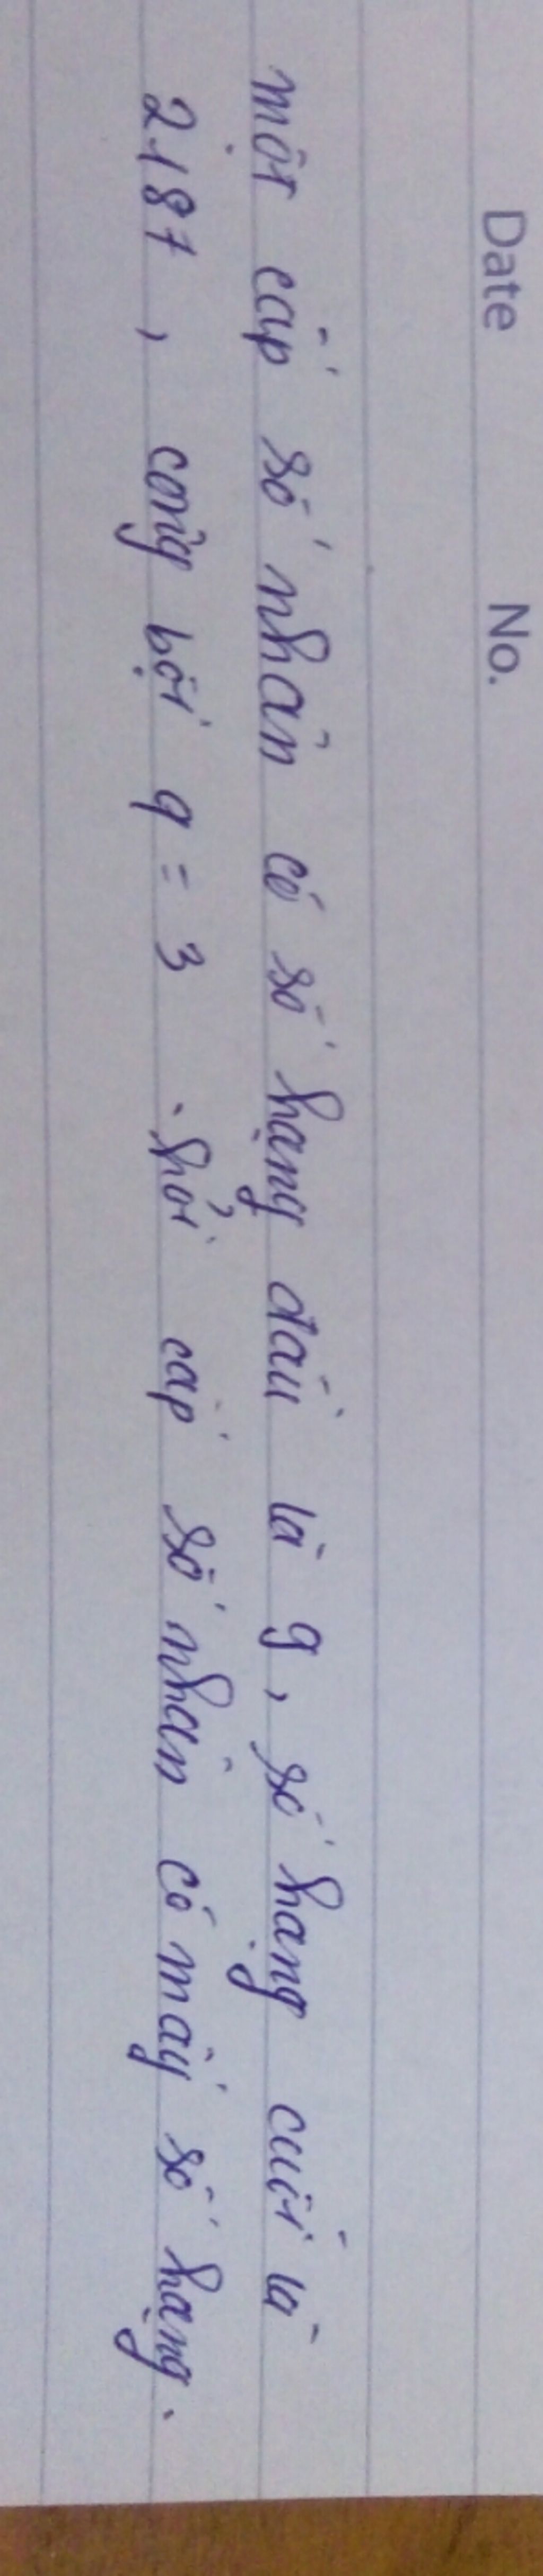 Date No.
một cấp số nhân có số hạng đầu là 9, số hạng cuối là
2187, công bội q = 3. hỏi cấp số nhân có mấy số hạng.